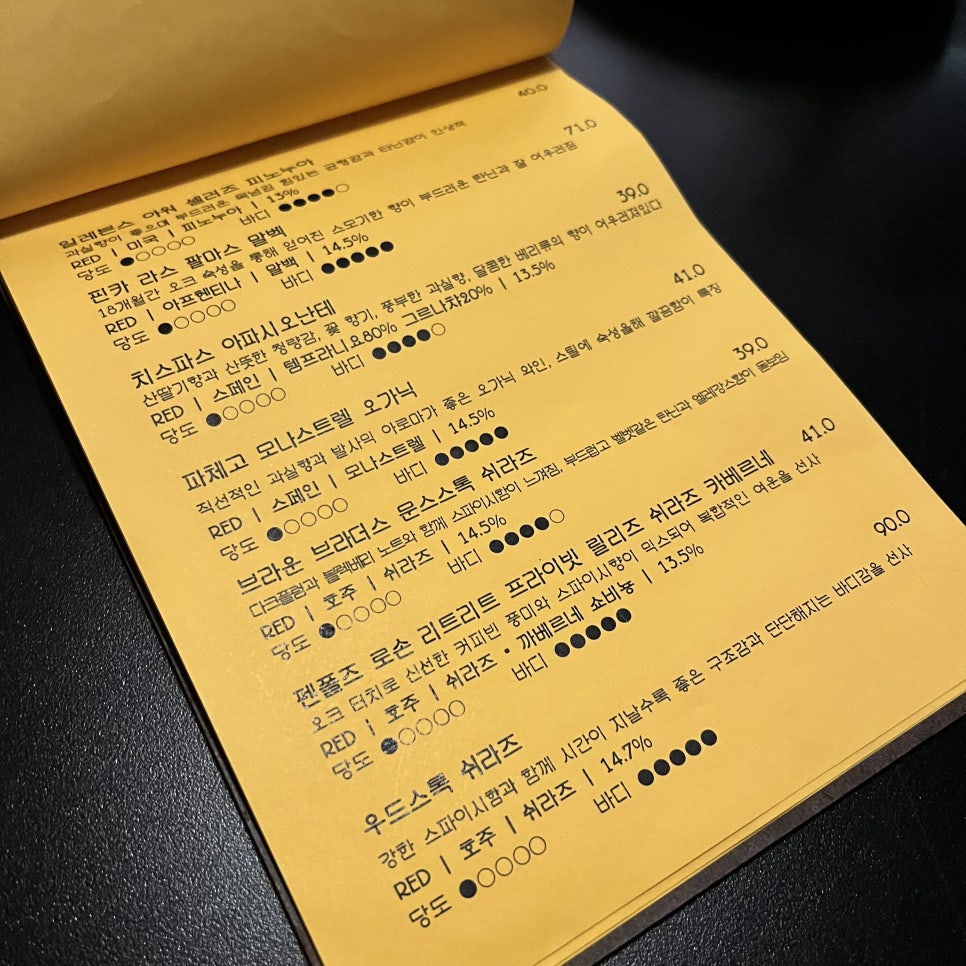 일레븐스 아워 셀러즈 피노누아 40.0
과실향이 좋으며 부드러운 목넘김 힘있는 균형감과 타닌감이 인상적
RED | 미국 | 피노누아 | 13%
당도 ●○○○○ 바디 ●●●●○
핀카 라스 팔마스 말벡 71.0
18개월간 오크 숙성을 통해 얻어진 스모기한 향이 부드러운 탄닌과 잘 어우러짐
RED | 아프헨티나 | 말백 | 14.5%
당도 ●○○○○ 바디 ●●●●●
치스파스 아파시오난테 39.0
산딸기향과 산뜻한 청량감, 꽃 향기, 풍부한 과실향, 달콤한 베리류의 향이 어우러져있다
RED | 스페인 | 템프라니요80% 그르나챠20% | 13.5%
당도 ●○○○○ 바디 ●●●●○
파체고 모나스트렐 오가닉 41.0
직선적인 과실향과 발사믹 아로마가 좋은 오가닉 와인, 스틸에 숙성을해 깔끔함이 특징
RED | 스페인 | 모나스트렐 | 14.5%
당도 ●○○○○ 바디 ●●●●●
브라운 브라더스 문스스톡 쉬라즈 39.0
다크플럼과 블랙베리 노트와 함께 스파이시함이 느껴짐, 부드럽고 벨벳같은 탄닌과 엘레강스함이 돋보임
RED | 호주 | 쉬라즈 | 14.5%
당도 ●○○○○ 바디 ●●●●○
펜폴즈 로손 리트리트 프라이빗 릴리즈 쉬라즈 카베르네 41.0
오크 터치로 신선한 커피빈 풍미와 스파이시향이 믹스되어 복합적인 여운을 선사
RED | 호주 | 쉬라즈 • 까베르네 쇼비뇽 | 13.5%
당도 ●○○○○ 바디 ●●●●●
우드스톡 쉬라즈 90.0
강한 스파이시함과 함께 시간이 지날수록 좋은 구조감과 단단해지는 바디감을 선사
RED | 호주 | 쉬라즈 | 14.7%
당도 ●○○○○ 바디 ●●●●●